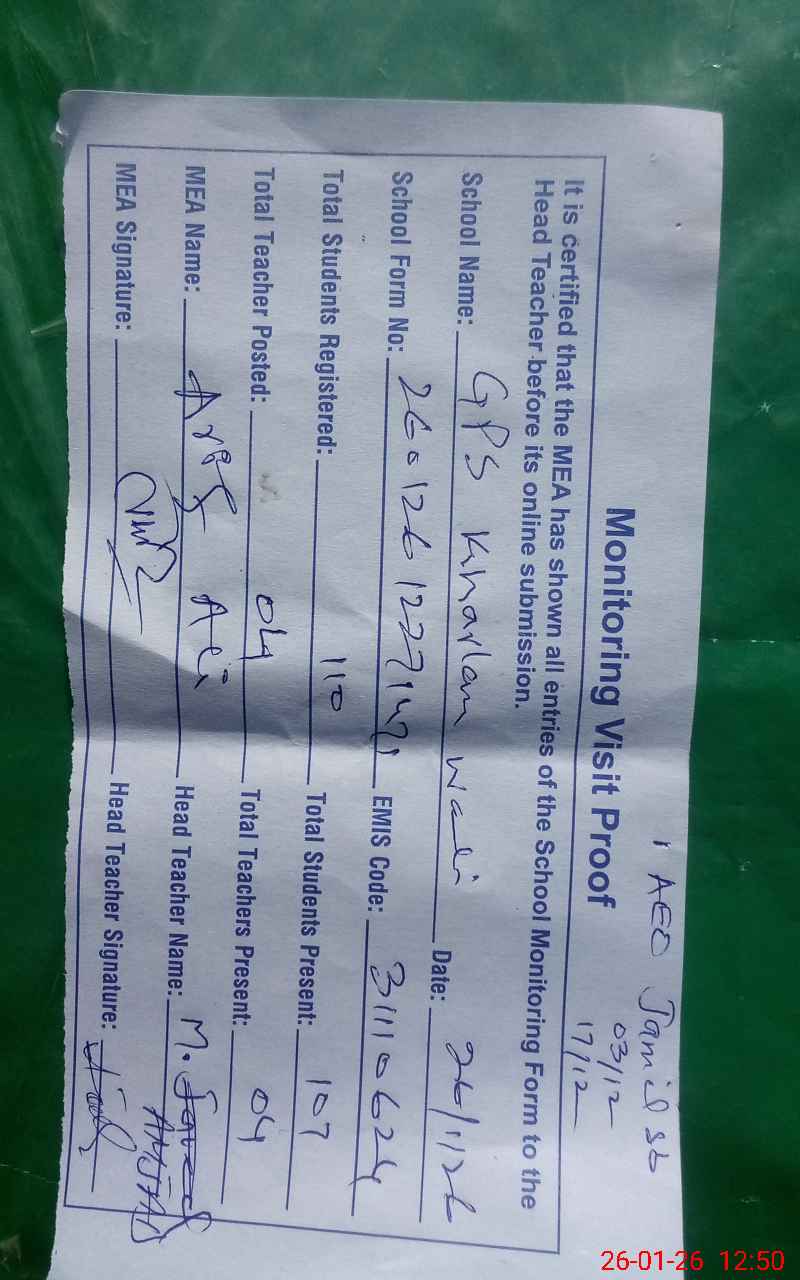 AEO Jamil sb
03/12
17/12
Monitoring Visit Proof
It is certified that the MEA has shown all entries of the School Monitoring Form to the
Head Teacher before its online submission.
School Name: GPS Kharlan Wali Date: 26/1/26
School Form No: EMIS Code: 31110624
Total Students Registered: 110 Total Students Present: 107
Total Teacher Posted: 04 Total Teachers Present: 04
MEA Name: Ali Head Teacher Name: M. Javed
AMJAD
MEA Signature: Head Teacher Signature:
26-01-26 12:50